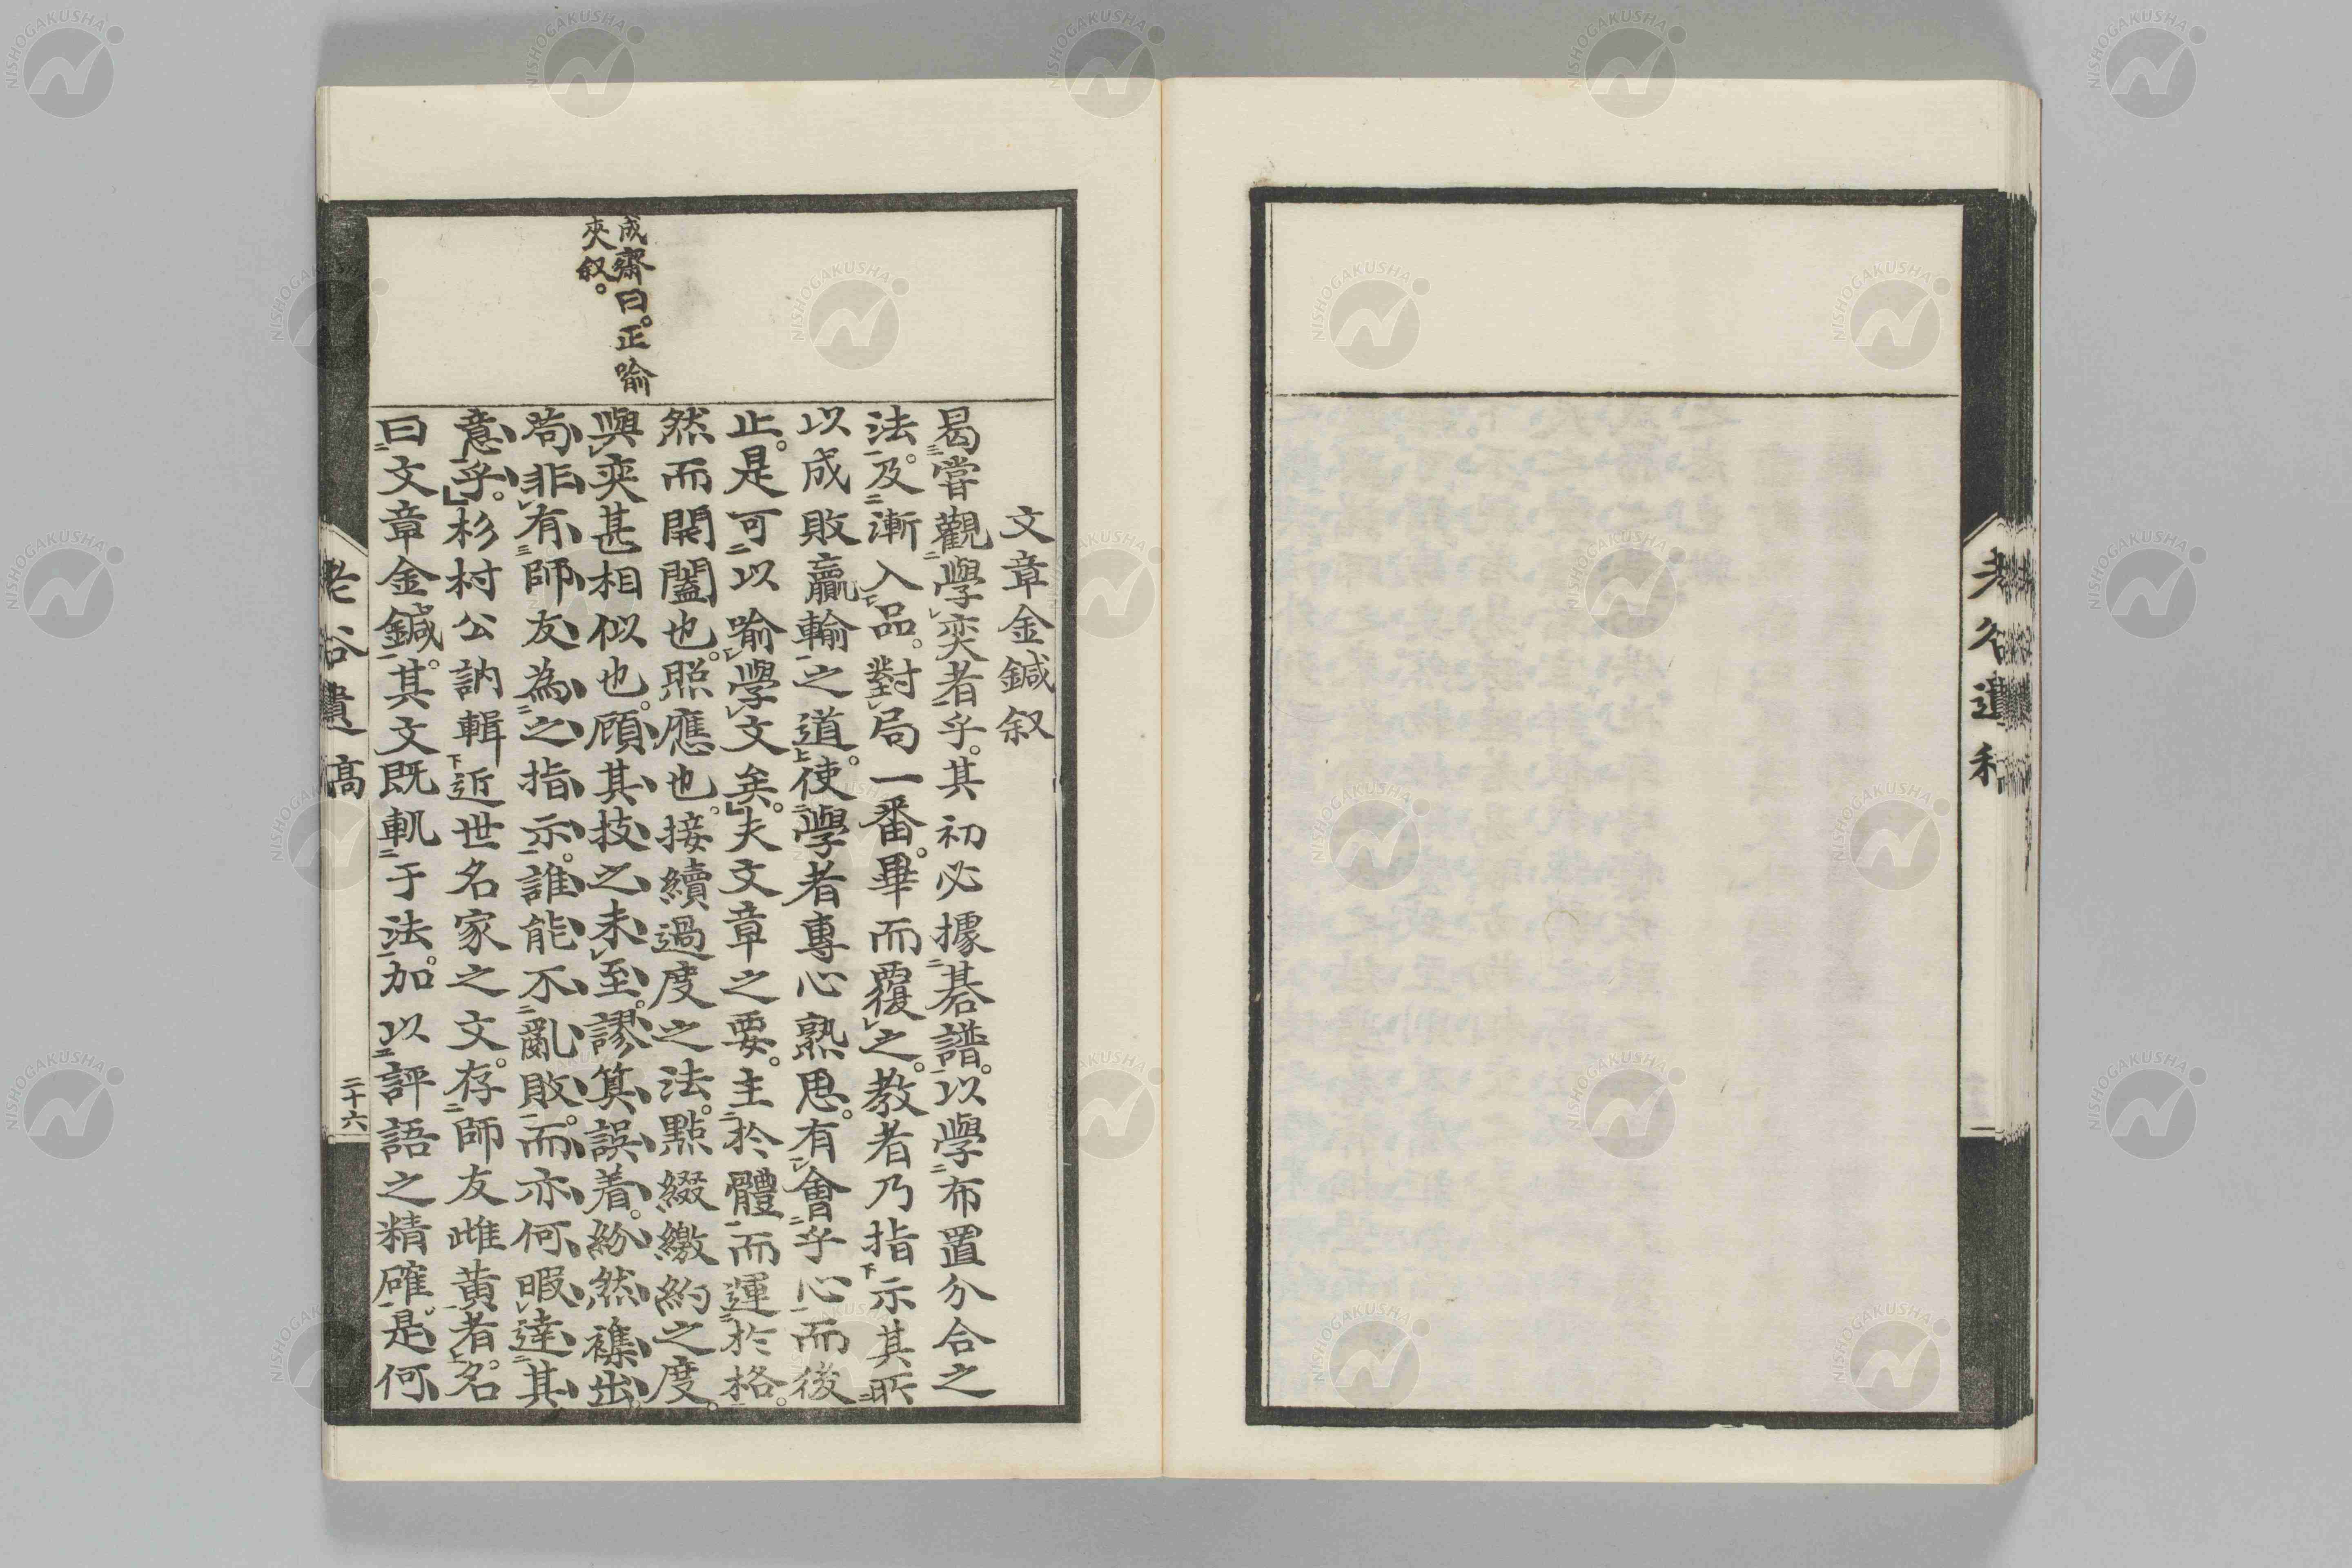 老谷遺稿
文章金鍼叙
曷嘗觀學奕者乎。其初必據碁譜。以學布置分合之
法。及漸入品。對局一番。畢而覆之。教者乃指示其所
以成敗贏輸之道。使學者專心熟思。有會乎心而後
止。是可以喻學文矣。」夫文章之要。主於體而運於格。
然而開闔也。照應也。接續過度之法。點綴繳約之度。
與奕甚相似也。顧其技之未至。謬筭誤着。紛然襍出。
苟非有師友為之指示。誰能不亂敗。而亦何暇達其
意乎。」杉村公訥輯近世名家之文。存師友雌黄者。名
曰文章金鍼。其文既軌于法。加以評語之精確。是何
成齋曰。正喻
夾叙。
老谷遺稿
二十六
NISHOGAKUSHA